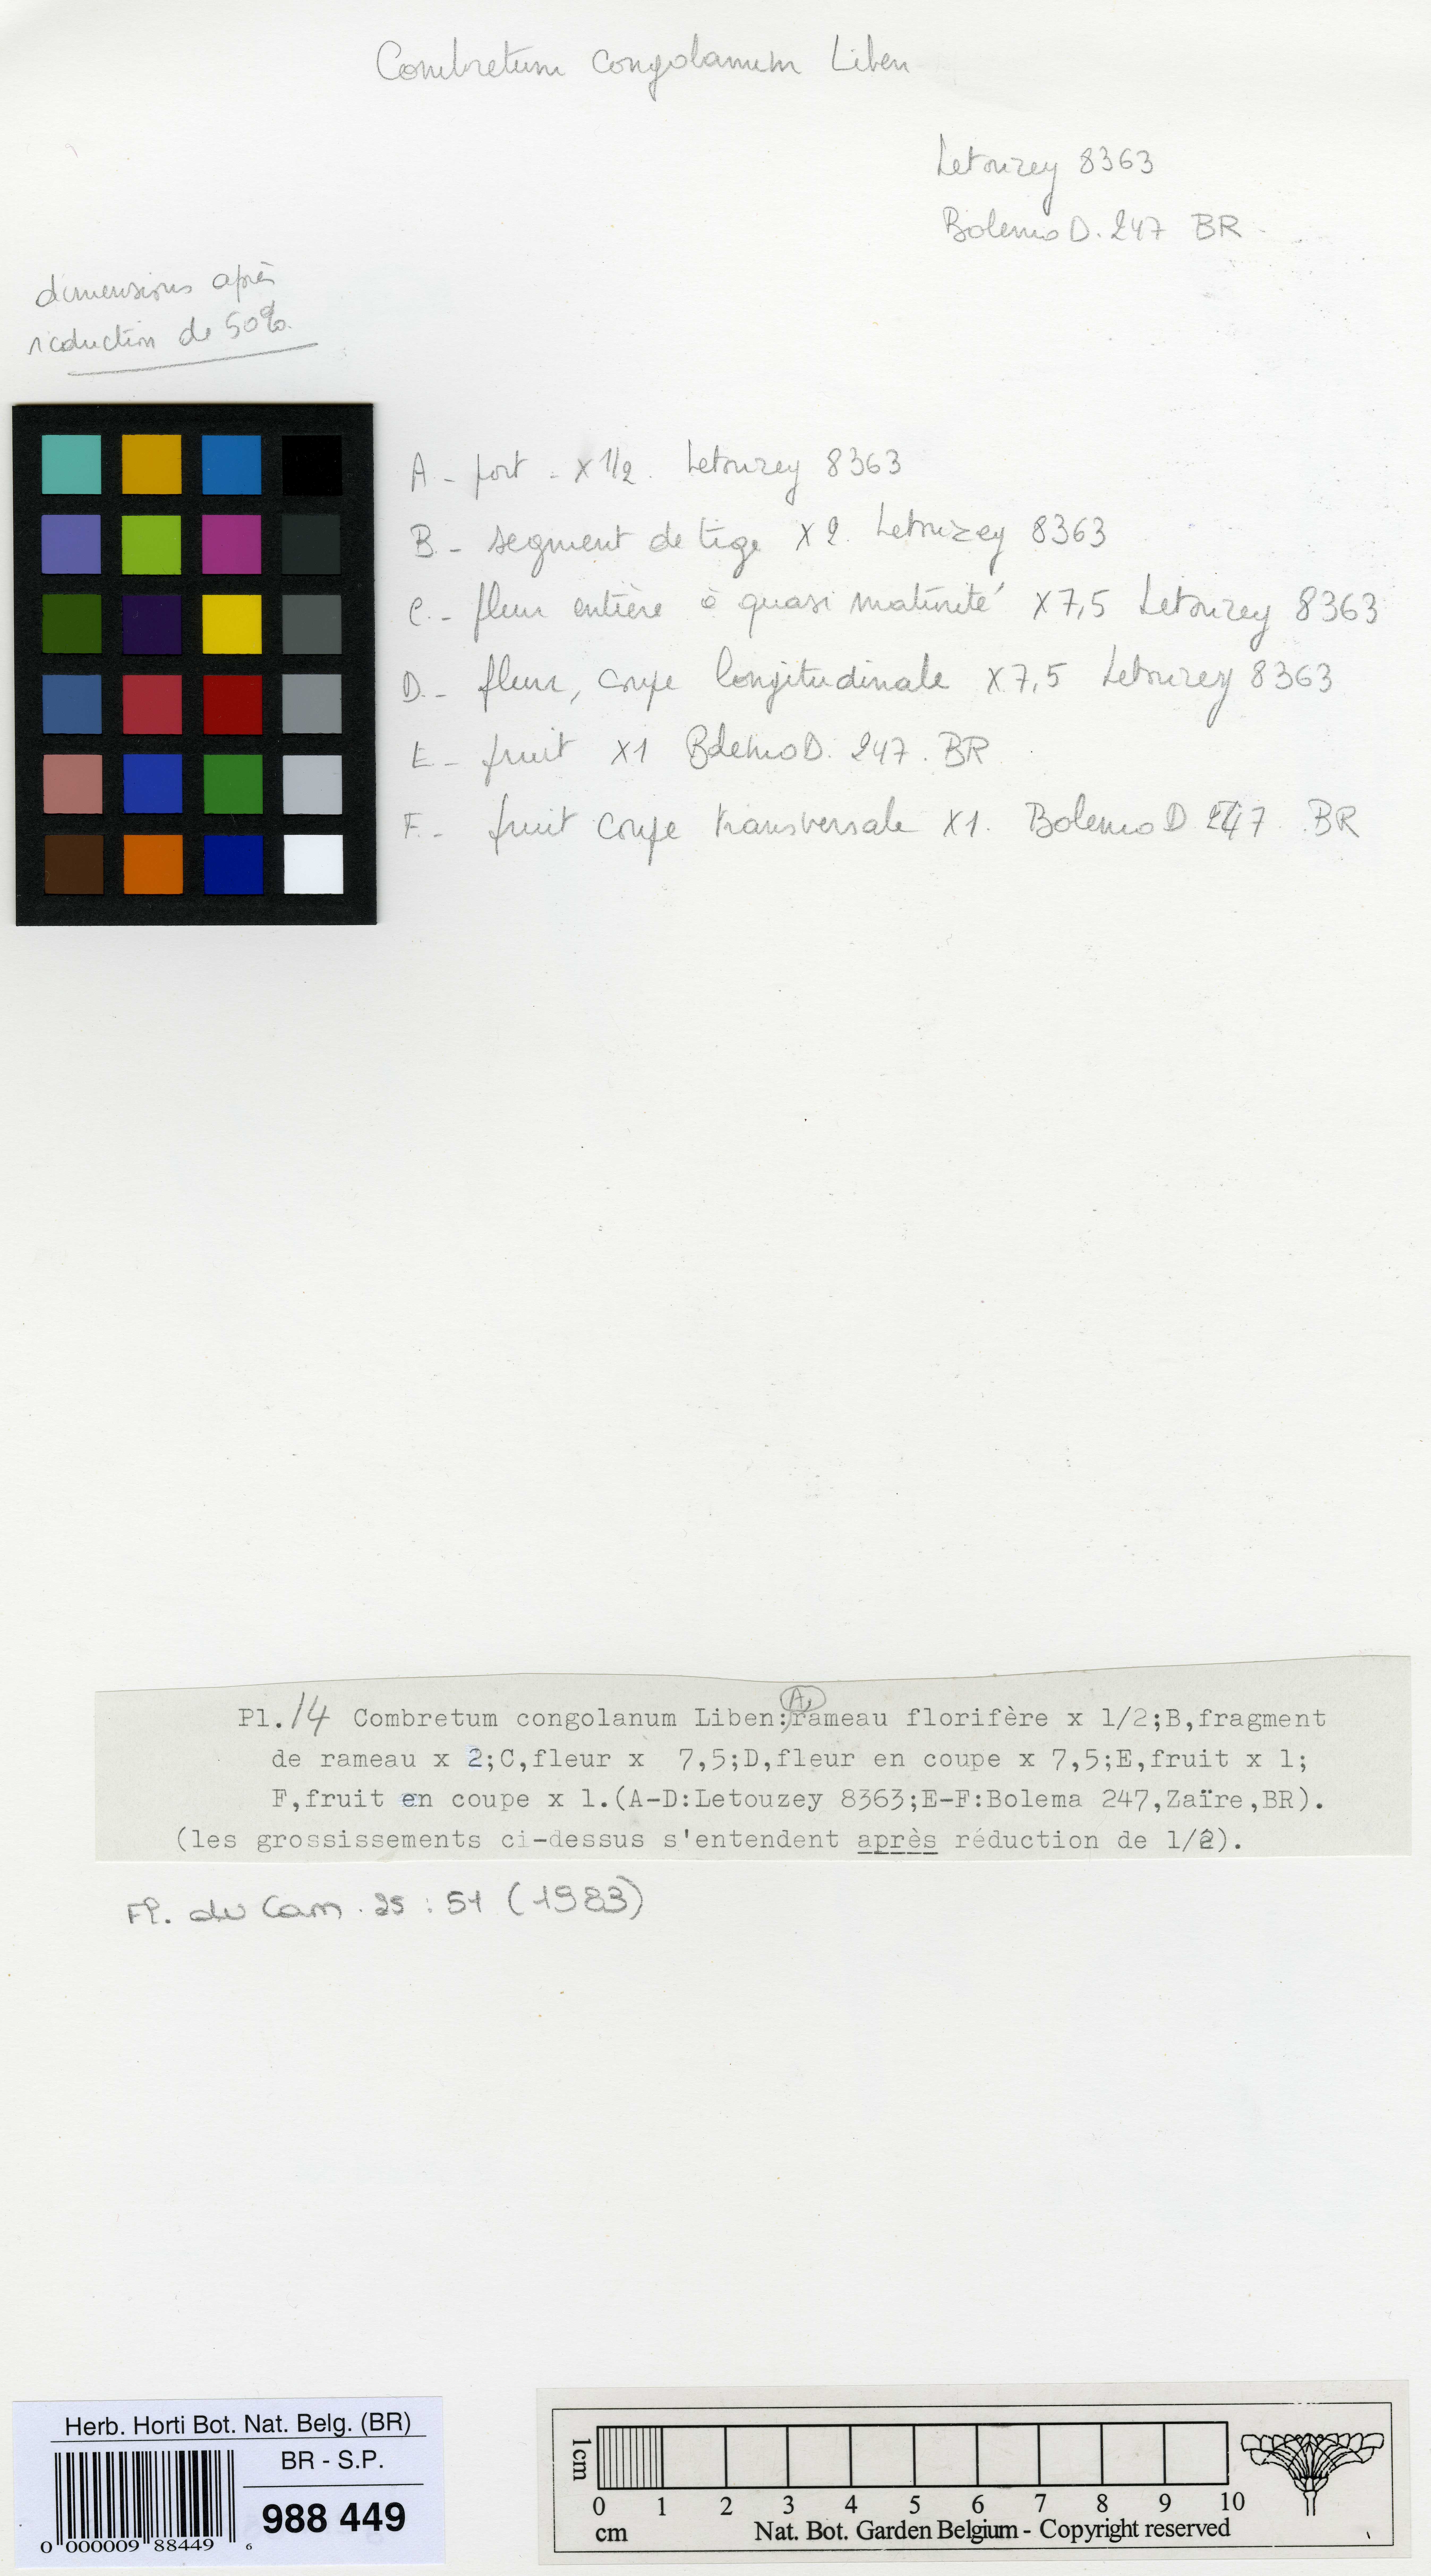 Combretum congolanum Liben
Letouzey 8363
Bolemo D. 247 BR
dimensions après
réduction de 50%.
A - port - x 1/2. Letouzey 8363
B - segment de tige x 2. Letouzey 8363
C - fleur entière à quasi maturité x 7,5 Letouzey 8363
D - fleur, coupe longitudinale x 7,5 Letouzey 8363
E - fruit x1 Bolemo D. 247. BR
F - fruit coupe transversale x1. Bolemo D 247. BR
Pl. 14 Combretum congolanum Liben: A, rameau florifère x 1/2;B,fragment
de rameau x 2;C,fleur x 7,5;D,fleur en coupe x 7,5;E,fruit x 1;
F,fruit en coupe x 1.(A-D:Letouzey 8363;E-F:Bolema 247,Zaïre,BR).
(les grossissements ci-dessus s'entendent après réduction de 1/2).
Fl. du Cam. 25 : 51 (1983)
Herb. Horti Bot. Nat. Belg. (BR)
BR - S.P.
988 449
0 000009 88449 6
1cm
0 1 2 3 4 5 6 7 8 9 10
cm Nat. Bot. Garden Belgium - Copyright reserved